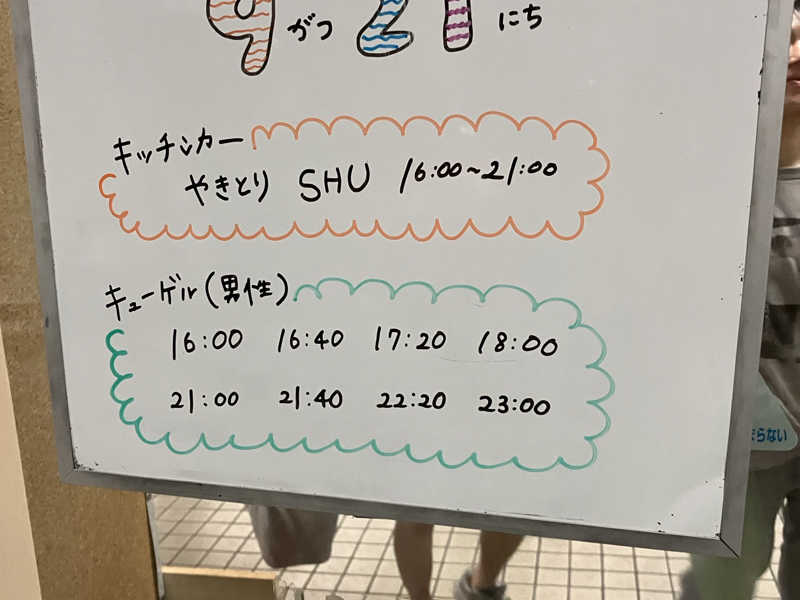 9がつ21にち
キッチンカー
やきとり SHU 16:00~21:00
キューゲル(男性)
16:00 16:40 17:20 18:00
21:00 21:40 22:20 23:00
らない